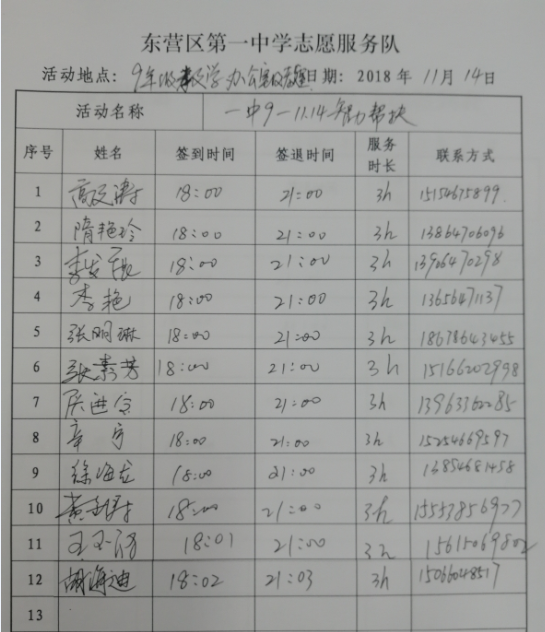 东营区第一中学志愿服务队
活动地点：9年级 办公室 日期：2018年11月14日
活动名称 一中9—11.14 智力帮扶
序号 姓名 签到时间 签退时间 服务时长 联系方式
1 18:00 21:00 3h 15154675899
2 隋艳玲 18:00 21:00 3h 13864706096
3 18:00 21:00 3h 13926470298
4 李艳 18:00 21:00 3h 13656471137
5 张丽琳 18:00 21:00 3h 18678643455
6 张素芳 18:00 21:00 3h 15166202998
7 18:00 21:00 3h 13963362285
8 辛宇 18:00 21:00 3h 15254669597
9 徐海龙 18:00 21:00 3h
10 18:00 21:00 3h
11 18:01 21:00 3h 15615069802
12 胡海迪 18:02 21:03 3h 15066048517
13